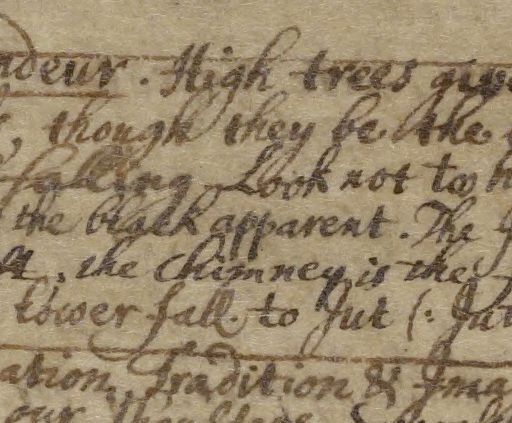 ndeur. High trees give
, though they be the
falling. Look not too h
the black apparent. The
, the chimney is the
tower fall to Jut (: Jut
ation, Tradition & Ima
our